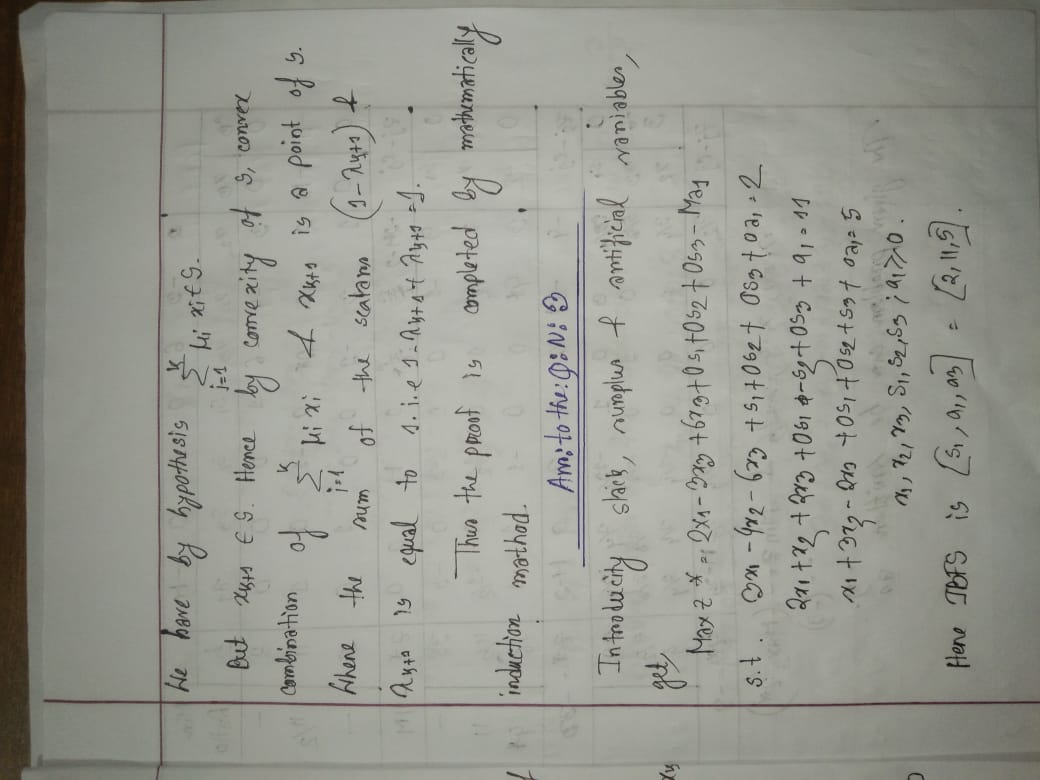 We have by hypothesis \sum_{i=1}^{k} μi xi ∈ S.
But xk+1 ∈ S. Hence by convexity of S, convex
combination of \sum_{i=1}^{k} μi xi & xk+1 is a point of S.
Where the sum of the scalars (1-λk+1) &
λk+1 is equal to 1. i.e 1-λk+1+λk+1=1.
Thus the proof is completed by mathematically
induction mathod.
Ans: to the: Q: N: 3
Introducity slack, surplus & artificial variables,
get,
Max z* = 2x1 - 3x2 + 6x3 + 0s1 + 0s2 + 0s3 - Ma1
s.t. 3x1 - 4x2 - 6x3 + s1 + 0s2 + 0s3 + 0a1 = 2
2x1 + x2 + 2x3 + 0s1 - s2 + 0s3 + a1 = 11
x1 + 3x2 - 2x3 + 0s1 + 0s2 + s3 + 0a1 = 5
x1, x2, x3, s1, s2, s3, a1 ≥ 0.
Here IBFS is [s1, a1, a3] = [2, 11, 5].